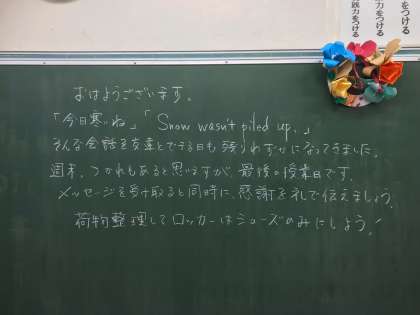 をつける
力をつける
践力をつける
おはようございます。
「今日寒いね」「Snow wasn't piled up.」
そんな会話を友達とできる日も残りわずかになってきました。
週末、つかれもあると思いますが、最後の授業日です。
メッセージを受け取ると同時に、感謝を礼で伝えましょう。
荷物整理してロッカーはシューズのみにしよう！